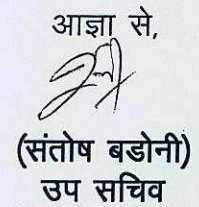 आज्ञा से,
(संतोष बडोनी)
उप सचिव